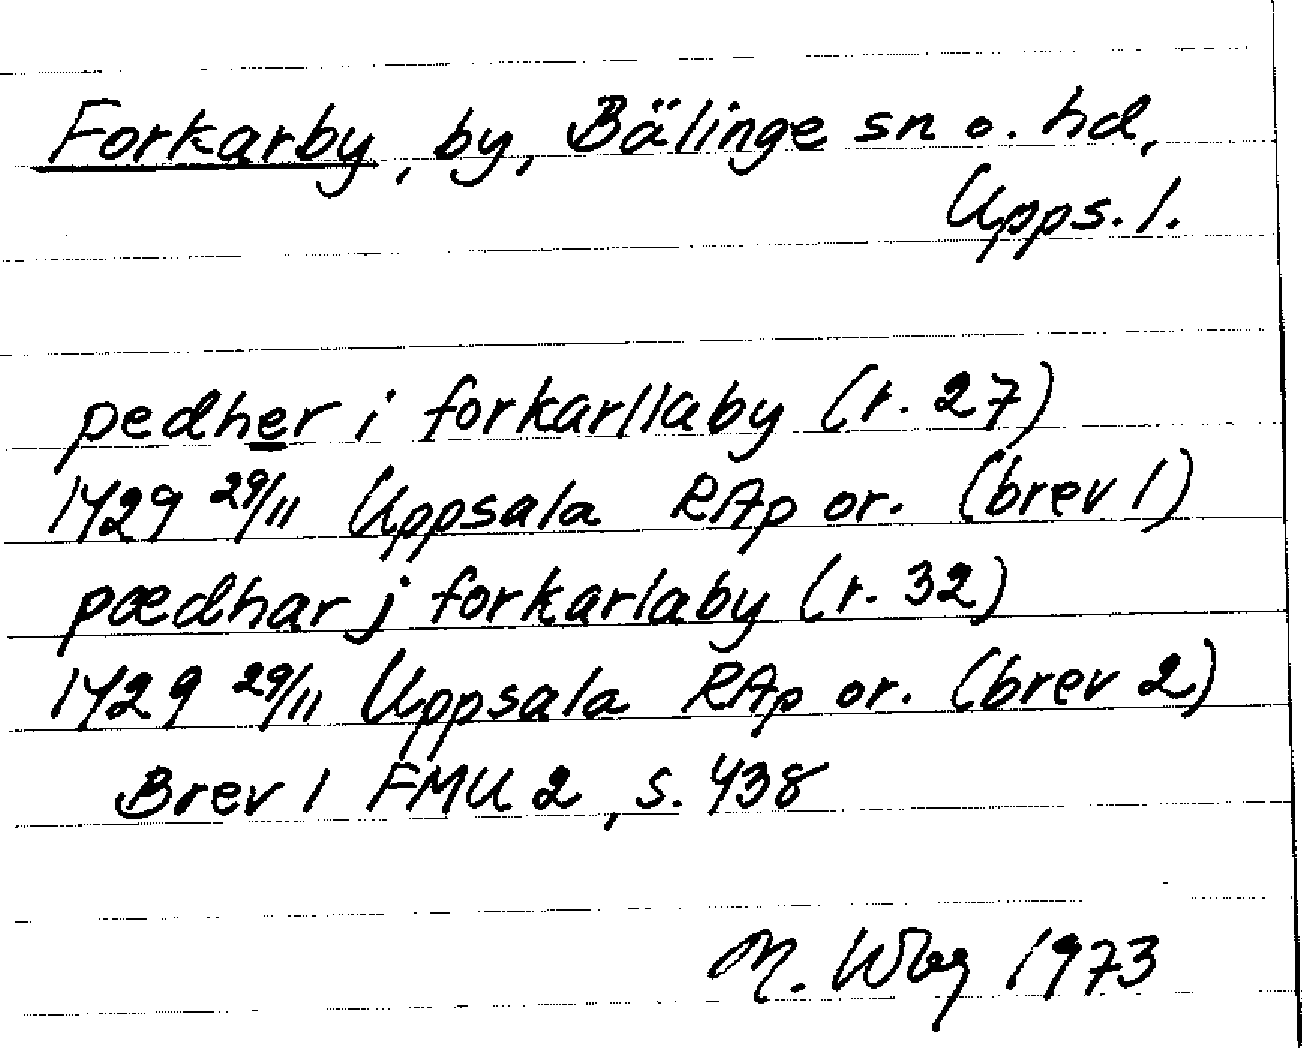 Forkarby, by, Bälinge sn o. hd,
Upps. l.
pedher i forkarllaby (r. 27)
1429 29/11 Uppsala RAp or. (brev 1)
pædhar j forkarlaby (r. 32)
1429 29/11 Uppsala RAp or. (brev 2)
Brev 1 FMU 2, s. 438
M. Wbg 1973